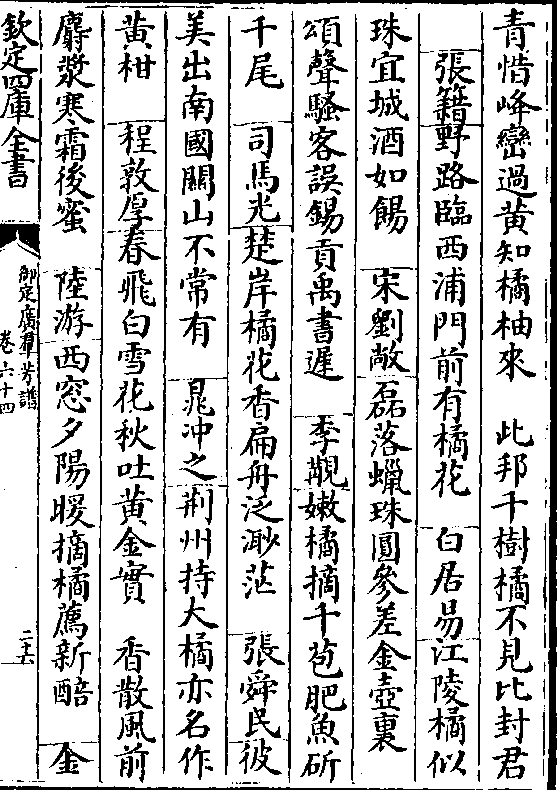 青惜峰巒過黄知橘柚來　此邦千樹橘不見比封君
張籍野路臨西浦門前有橘花　白居易江陵橘似
珠宜城酒如餳　宋劉敞磊落蠟珠圓參差金壺裏
頌聲騷客誤錫貢禹書遲　李覯嫩橘摘千苞肥魚斫
千尾　司馬光楚岸橘花香扁舟泛渺茫　張舜民彼
美出南國關山不常有　晁冲之荆州持大橘亦名作
黄柑　程敦厚春飛白雪花秋吐黄金實　香散風前
麝漿寒霜後蜜　陸游西窓夕陽暖摘橘薦新醅　金
欽定四庫全書
御定廣羣芳譜
卷六十四
二十六